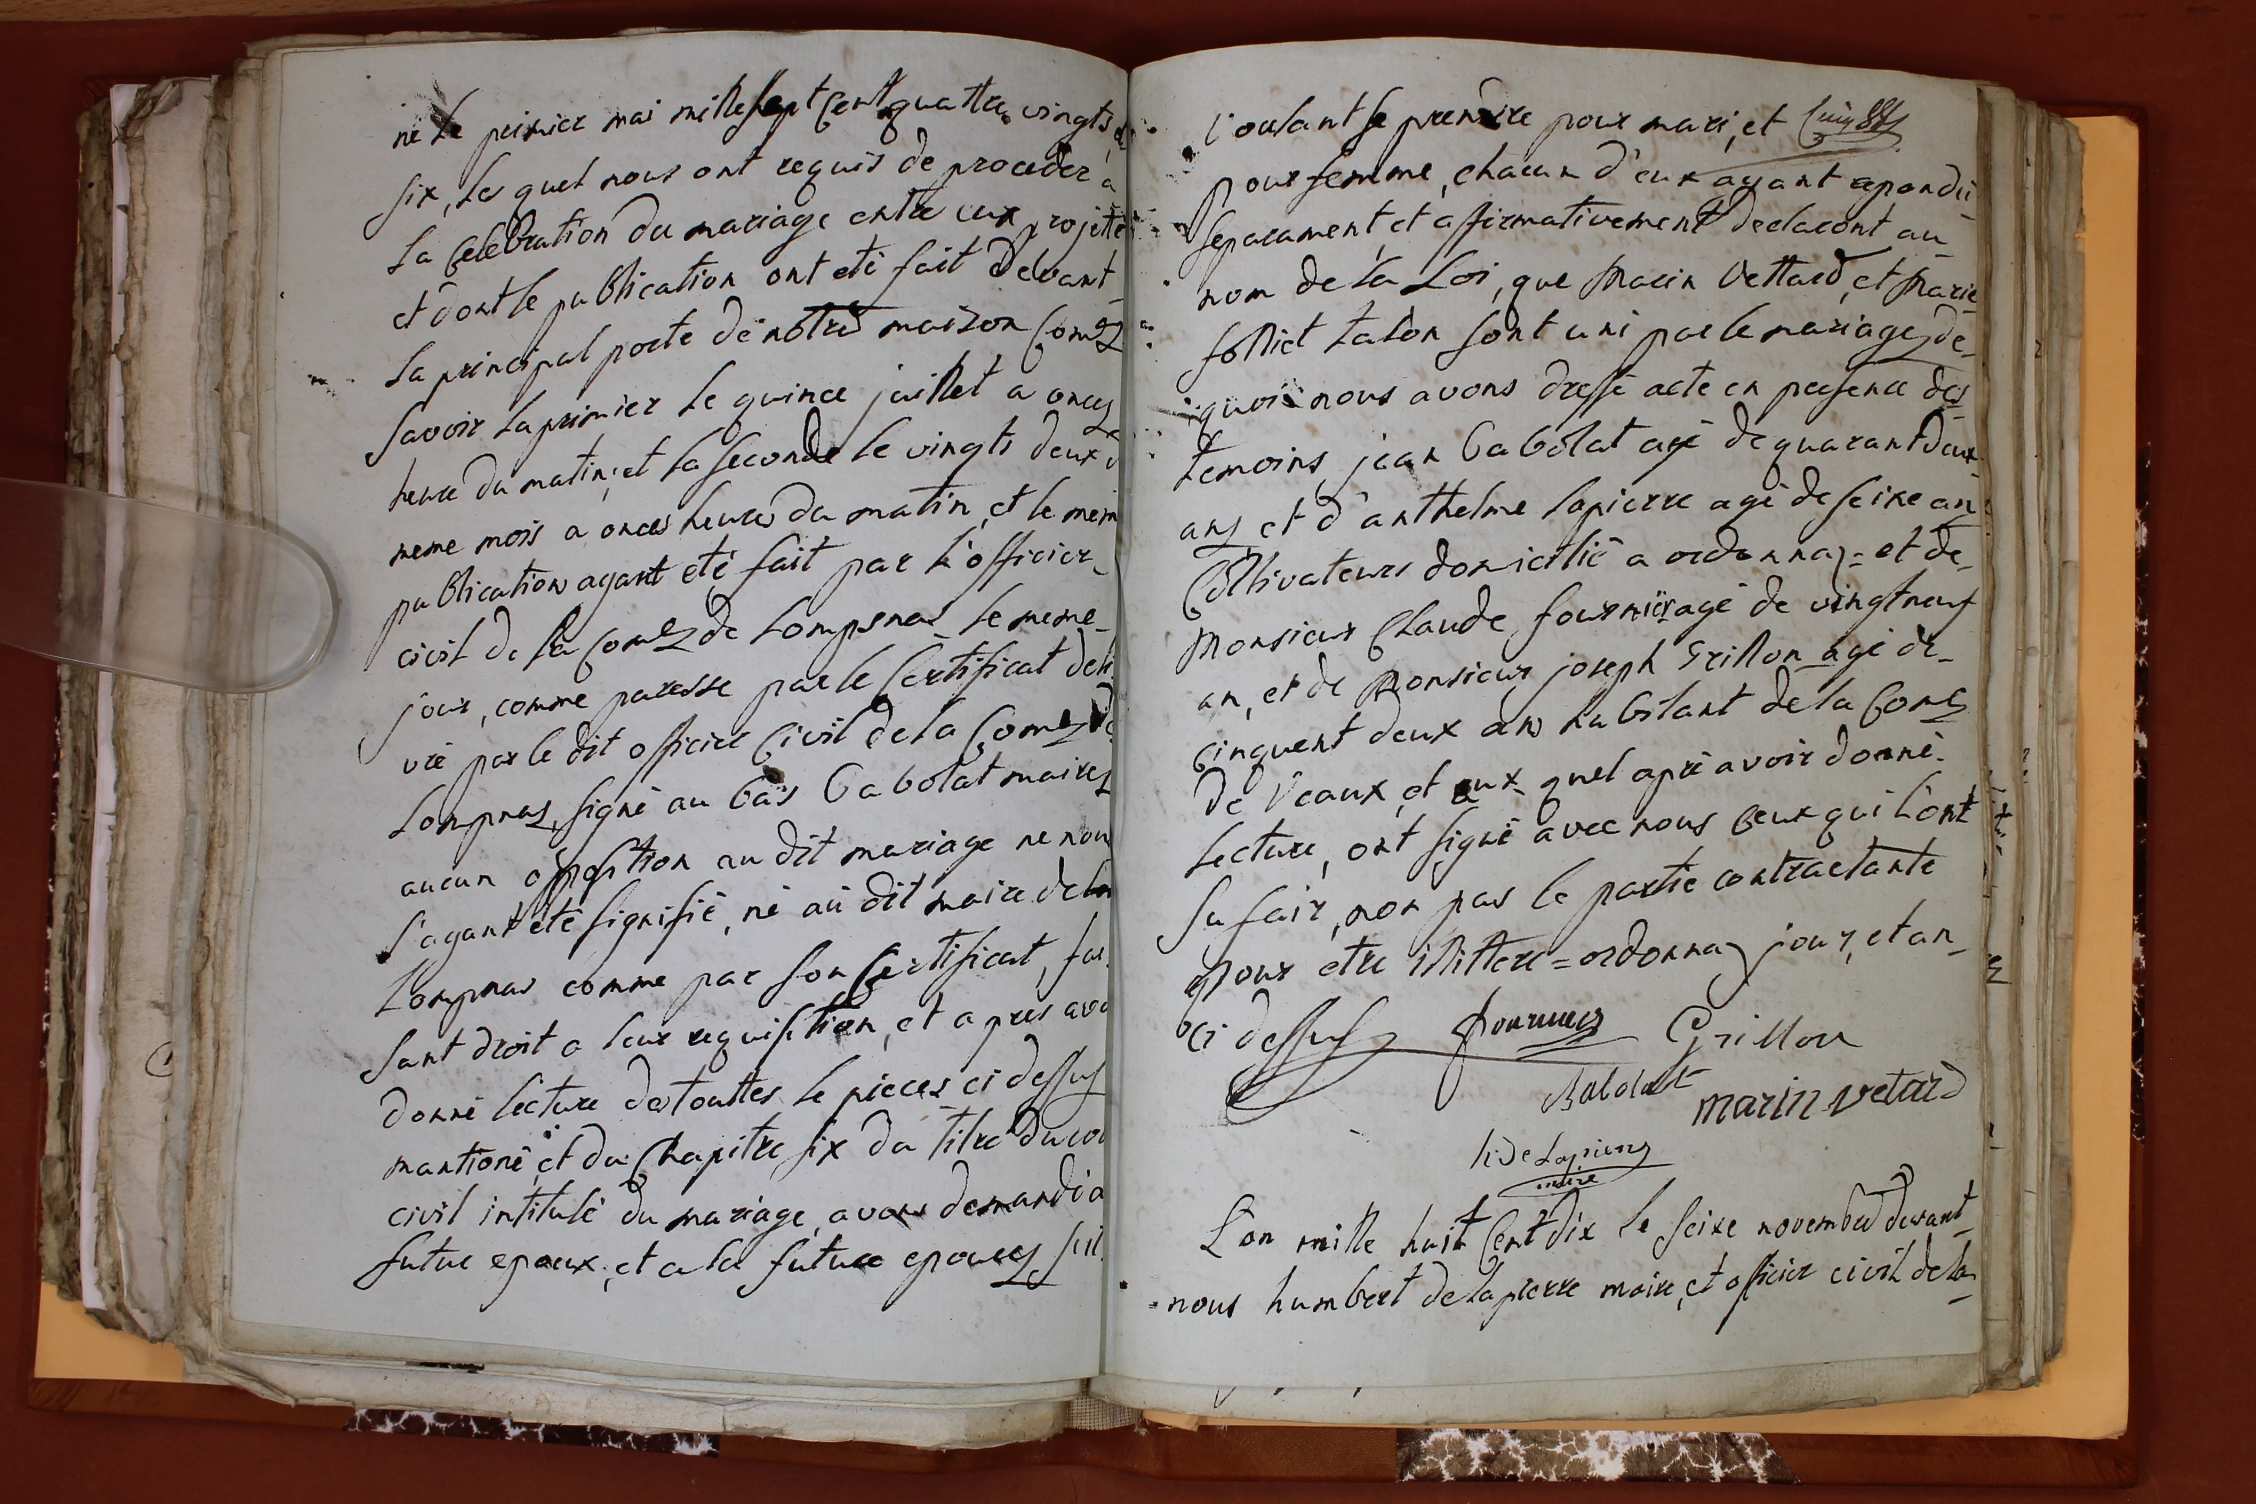 né Le peimier mai mille sept Cent quattre vingts
six, Les quel nous ont requis de proceder a
La Celebration du mariage entre eux projetté
et dont le publication ont eté fait devant
La principal porte de notre maison Come
savoir La primier Le quince juillet a onces
heure du matin, et La seconde Le vingts deux d
meme mois a onces heures du matin, et le mem
publication ayant eté fait par L'officier
civil de La Come de Lompnas Le meme
jour, comme paresse par le Certificat deli
vré par le dit officier Civil de la Come de
Lompnas, signé au bas Babolat maire
aucun opposition au dit mariage ne nous
s'ayant eté signifié, né au dit maire de
Lompnas comme par son Certificat, fai
sant droit a leur requisition, et apres avo
donné Lecture des touttes Le pieces ci dessus
mantioné, et du Chapitre six du titre du co
civil intitulé du mariage, avons demandé a
futur epoux, et a la future epouse, s'il
voulant se prendre pour mari, et
pour femme, chacun d'eux ayant repondu
separament, et affirmativement declaront au
nom de la Loi, que Marin Vettard, et Marie
follict talon sont uni par le mariage, de
quoi nous avons dressé acte en presence des
temoins jean babolat agé de quarant deux
ans et d'anthelme lapierre agé de seixe an
Coltivateurs domicillié a ordonnaz = et de
Monsieur Claude fournier agé de vingt neuf
an, et de Monsieur joseph Grillon agé de
cinquent deux ans habitant de la Come
de Veaux, et aux quel apré avoir donné
Lecture, ont signé avec nous Ceux qui L'ont
su fair, non pas le partie contractante
pour etre illittere = ordonnaz jour, et an
ci dessus Fournier Grillon
Babolat marin vetard
h. De Lapierre
maire
L'an mille huit Cent dix Le seixe novembre devant
nous humbert de Lapierre maire, et officier civil de la